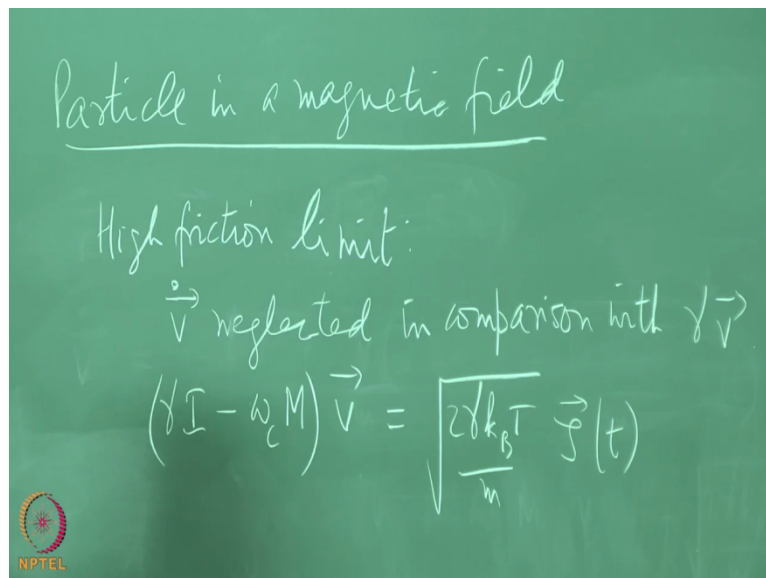 Particle in a magnetic field
High friction limit:
$\dot{\vec{v}}$ neglected in comparison with $\gamma \vec{v}$
$(\gamma I - \omega_c M) \vec{v} = \sqrt{\frac{2\gamma k_B T}{m}} \, \vec{\zeta}(t)$
NPTEL